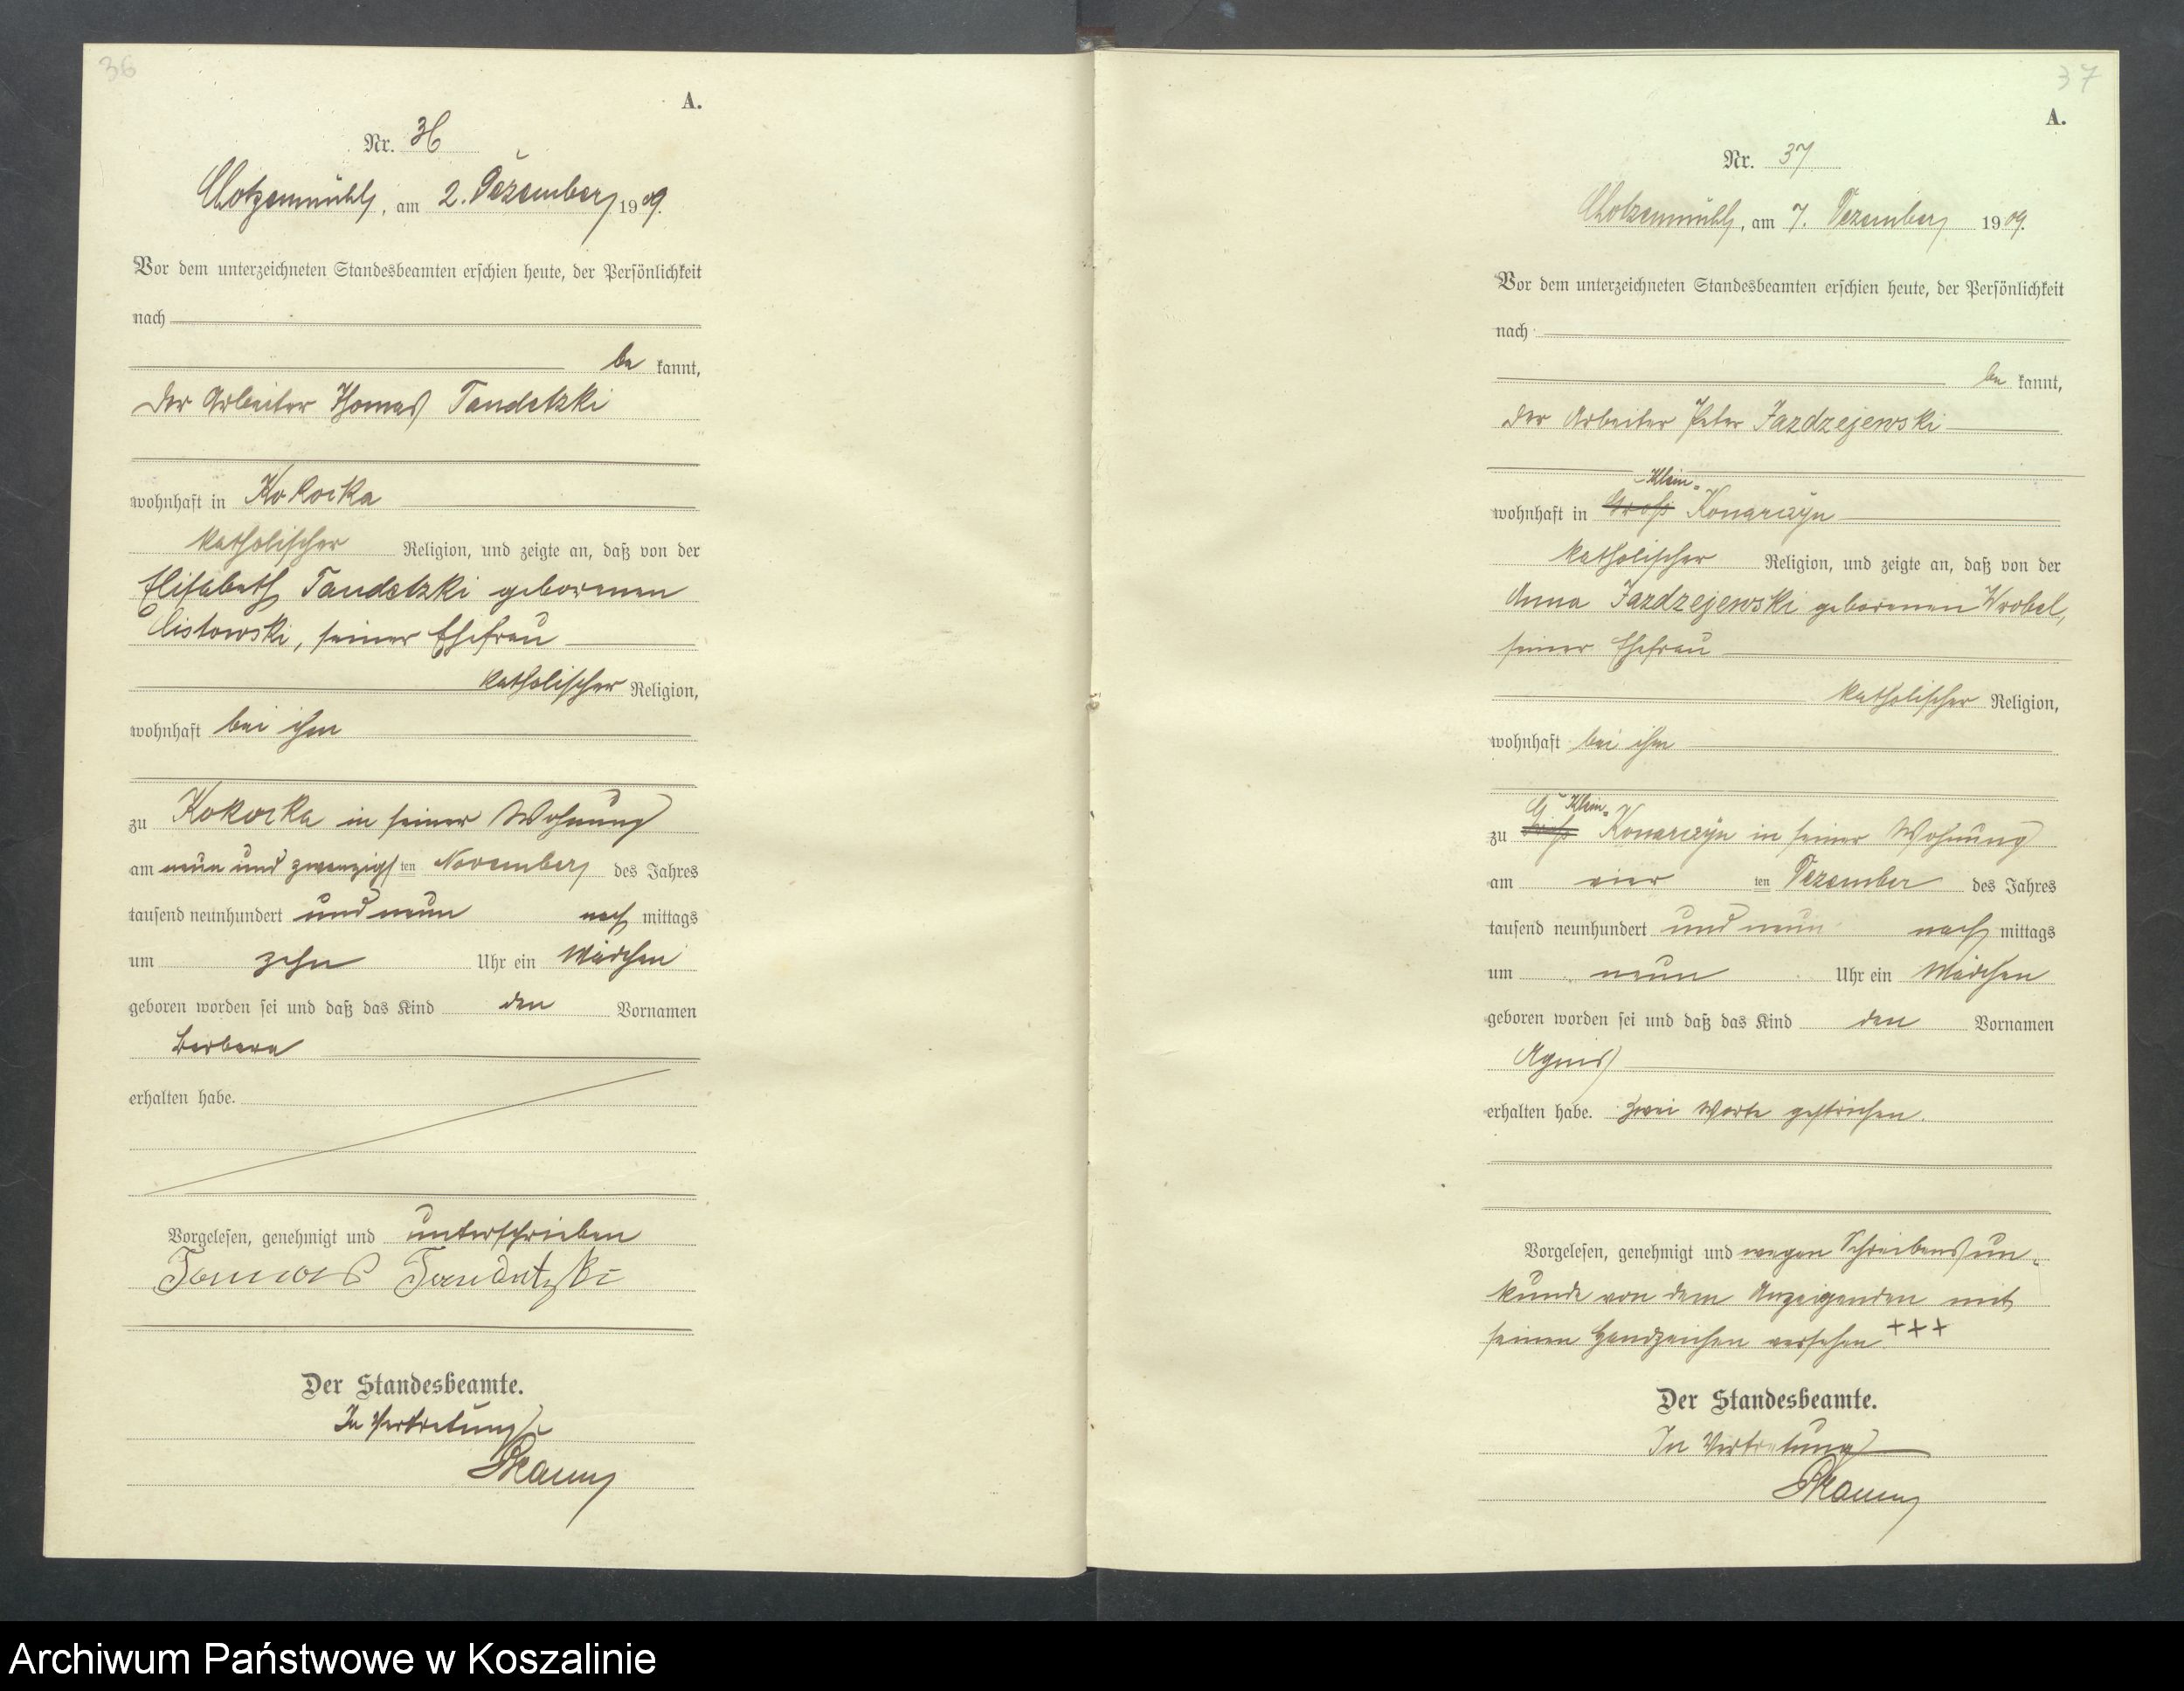 36
A.
Nr. 36
Chotzenmühl, am 2. Dezember 1909.
Vor dem unterzeichneten Standesbeamten erschien heute, der Persönlichkeit
nach
be kannt,
der Arbeiter Thomas Tandetzki
wohnhaft in Kokocka
katholischer Religion, und zeigte an, daß von der
Elisabeth Tandetzki geborenen
Cistowski, seiner Ehefrau
katholischer Religion,
wohnhaft bei ihm
zu Kokocka in seiner Wohnung
am neun und zwanzigs ten November des Jahres
tausend neunhundert und neun nach mittags
um zehn Uhr ein Mädchen
geboren worden sei und daß das Kind den Vornamen
Barbara
erhalten habe.
Vorgelesen, genehmigt und unterschrieben
Tomas Tandetzki
Der Standesbeamte.
In Vertretung
37
A.
Nr. 37
Chotzenmühl, am 7. Dezember 1909.
Vor dem unterzeichneten Standesbeamten erschien heute, der Persönlichkeit
nach
be kannt,
der Arbeiter Peter Jazdzejewski
Klein-
wohnhaft in Groß Konarczyn
katholischer Religion, und zeigte an, daß von der
Anna Jazdzejewski geborenen Wrobel,
seiner Ehefrau
katholischer Religion,
wohnhaft bei ihm
Klein-
zu Groß Konarczyn in seiner Wohnung
am vier ten Dezember des Jahres
tausend neunhundert und neun nach mittags
um neun Uhr ein Mädchen
geboren worden sei und daß das Kind den Vornamen
Agnes
erhalten habe. Zwei Worte gestrichen.
Vorgelesen, genehmigt und wegen Schreibensun-
kunde von dem Anzeigenden mit
seinem Handzeichen versehen +++
Der Standesbeamte.
In Vertretung
Archiwum Państwowe w Koszalinie